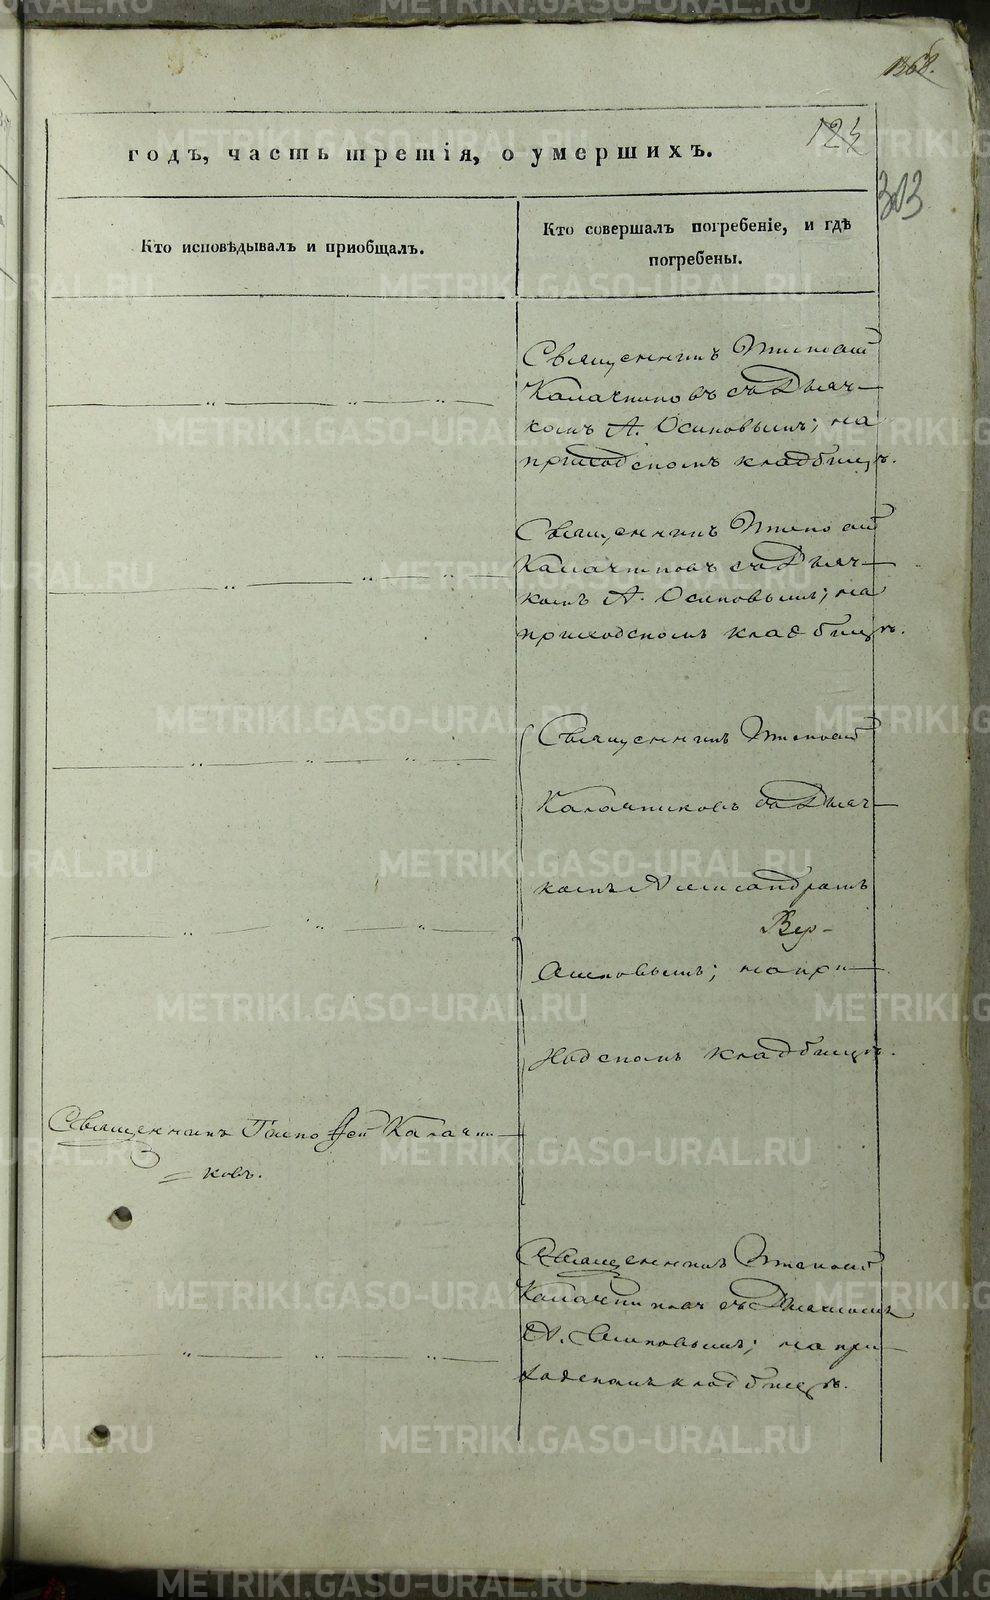 1368.
124
годъ, часть третія, о умершихъ.
303
Кто исповѣдывалъ и пріобщалъ.
Кто совершалъ погребеніе, и гдѣ
погребены.
Священникъ
Калачниковъ съ Дьяч-
комъ А. Осиповымъ; на
приходскомъ кладбищѣ.
Священникъ
Калачниковъ съ Дьяч-
комъ А. Осиповымъ; на
приходскомъ кладбищѣ.
Священникъ
Калачниковъ съ Дьяч-
комъ Александромъ
Осиповымъ; на при-
ходскомъ кладбищѣ.
Священникъ Калачни-
ковъ.
Священникъ
Калачниковъ съ Дьячкомъ
А. Осиповымъ; на при-
ходскомъ кладбищѣ.
METRIKI.GASO-URAL.RU